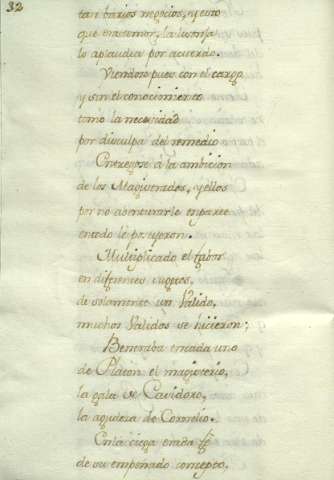 32
tan barios negocios, y esto
que era temor, la lisonja
lo aplaudia por acuerdo.
Viendose pues con el cargo
y sin el conocimiento
tomo la necesidad
por disculpa del remedio
Entregose à la ambicion
de los Magistrados, y ellos
por no abenturarle en parte
en todo le posuyeron.
Multiplicado el fabor
en diferentes sugetos,
de solamente un Valido,
muchos Validos se hicieron;
Beneraba en cada uno
de Platon el magisterio,
la gala de
la agudeza de Cornelio.
En la ciega errada fè
de su empeñado concepto.